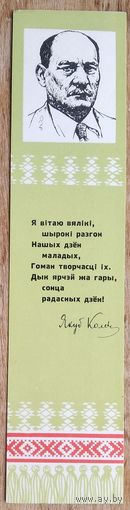 Я вітаю вялікі,
шырокі разгон
Нашых дзён
маладых,
Гоман творчасці іх.
Дык ярчэй жа гары,
сонца
радасных дзён!
Якуб Колас
www.ay.by